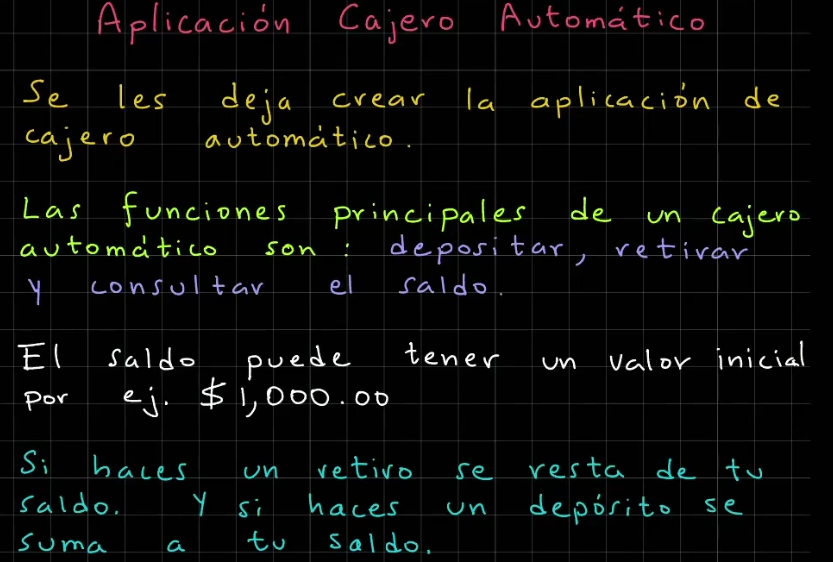 Aplicación Cajero Automático
Se les deja crear la aplicación de
cajero automático.
Las funciones principales de un cajero
automático son: depositar, retirar
y consultar el saldo.
El saldo puede tener un valor inicial
por ej. $1,000.00
Si haces un retiro se resta de tu
saldo. Y si haces un depósito se
suma a tu saldo.